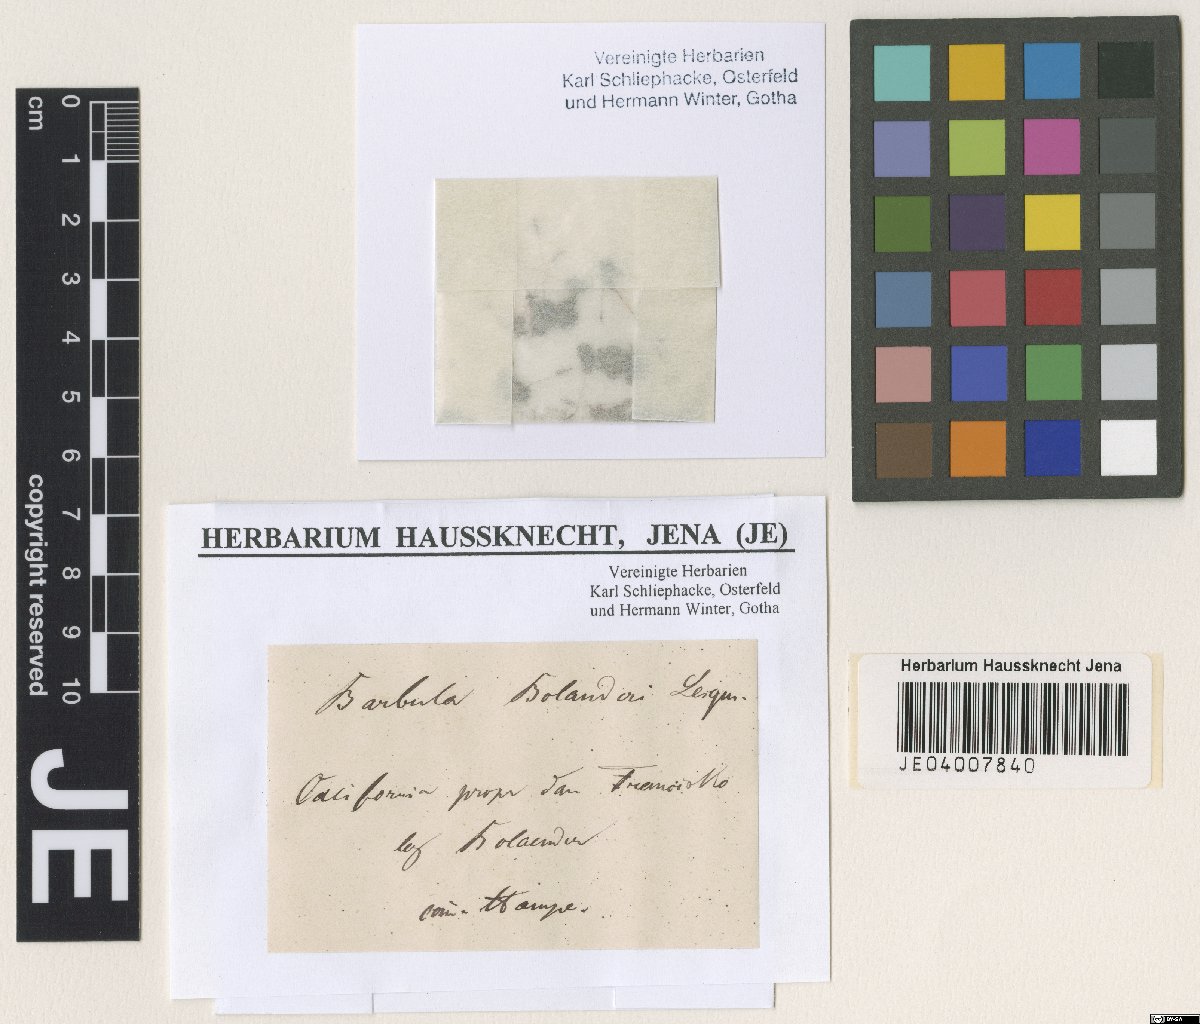 Vereinigte Herbarien
Karl Schliephacke, Osterfeld
und Hermann Winter, Gotha
cm
0
1
2
3
4
5
6
7
8
9
10
copyright reserved
JE
HERBARIUM HAUSSKNECHT, JENA (JE)
Vereinigte Herbarien
Karl Schliephacke, Osterfeld
und Hermann Winter, Gotha
Barbula Bolanderi Lesqu.
California prope San Francisko
leg Bolander
com. Hampe.
Herbarium Haussknecht Jena
JE04007840
CC BY-SA